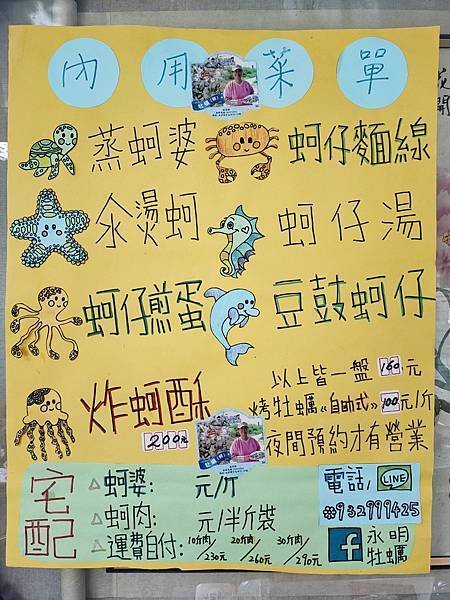 內用菜單
蒸蚵婆
蚵仔麵線
汆燙蚵
蚵仔湯
蚵仔煎蛋
豆鼓蚵仔
炸蚵酥
200元
以上皆一盤160元
烤牡蠣《自助式》100元/斤
夜間預約才有營業
宅配
△蚵婆: 元/斤
△蚵肉: 元/半斤裝
△運費自付: 10斤肉/230元 20斤肉/260元 30斤肉/290元
電話/LINE
#932999425
f 永明牡蠣